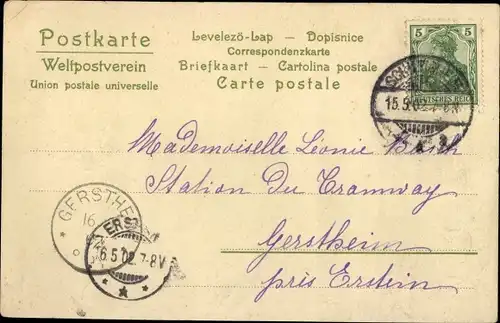 Postkarte
Weltpostverein
Union postale universelle
Levelező-Lap — Dopisnice
Correspondenzkarte
Briefkaart — Cartolina postale
Carte postale
5 5
DEUTSCHES REICH
15.5.02
Mademoiselle Léonie
Station Du Tramway
Gerstheim
près Erstein
GERSTHE
16
ERST
6.5.02.7-8V